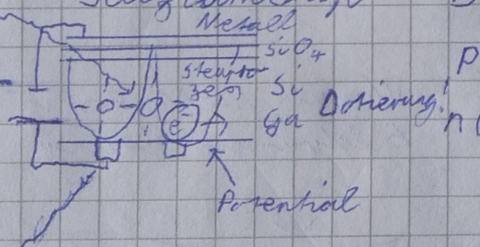 Metall
SiO4
Si
Dotierung!
Ga
e-
Potential
p
n